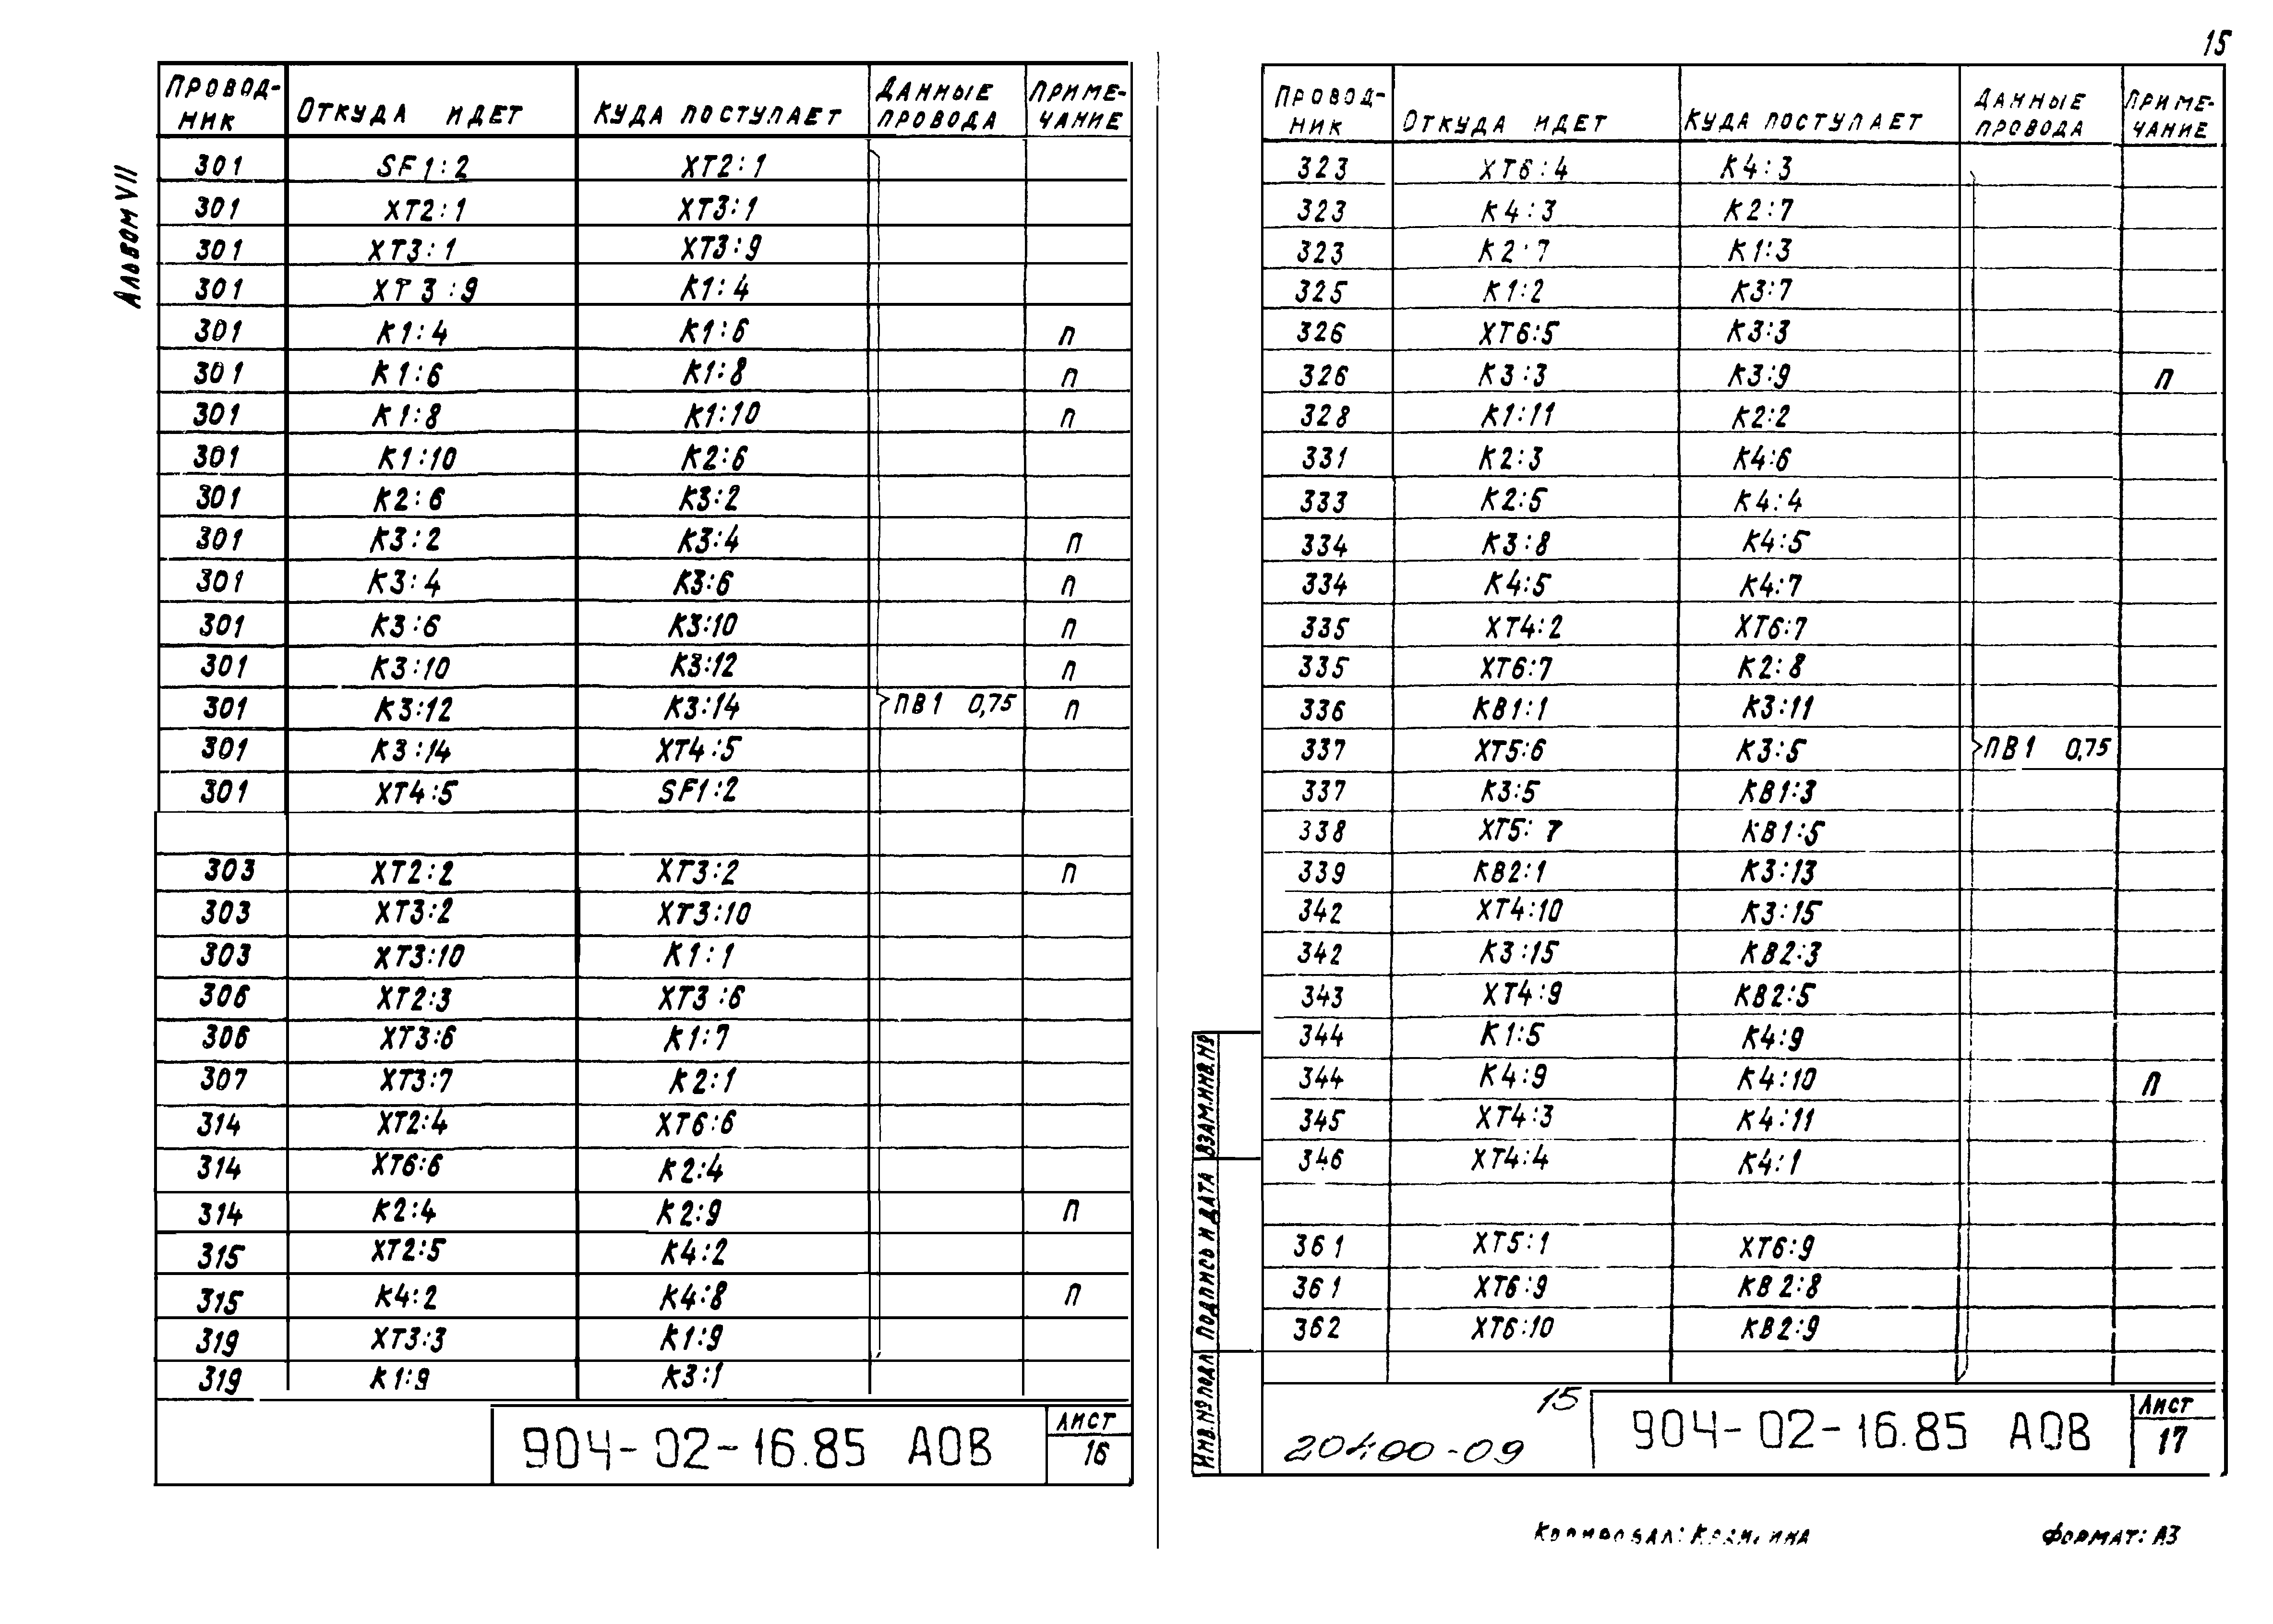 15
Альбом VII
Провод-ник Откуда идет Куда поступает Данные провода Приме-чание
301 SF1:2 XT2:1
301 XT2:1 XT3:1
301 XT3:1 XT3:9
301 XT3:9 K1:4
301 K1:4 K1:6 п
301 K1:6 K1:8 п
301 K1:8 K1:10 п
301 K1:10 K2:6
301 K2:6 K3:2
301 K3:2 K3:4 п
301 K3:4 K3:6 п
301 K3:6 K3:10 п
301 K3:10 K3:12 п
301 K3:12 K3:14 ПВ1 0,75 п
301 K3:14 XT4:5
301 XT4:5 SF1:2
303 XT2:2 XT3:2 п
303 XT3:2 XT3:10
303 XT3:10 K1:1
306 XT2:3 XT3:6
306 XT3:6 K1:7
307 XT3:7 K2:1
314 XT2:4 XT6:6
314 XT6:6 K2:4
314 K2:4 K2:9 п
315 XT2:5 K4:2
315 K4:2 K4:8 п
319 XT3:3 K1:9
319 K1:9 K3:1
904-02-16.85 АОВ
Лист
16
Провод-ник Откуда идет Куда поступает Данные провода Приме-чание
323 XT6:4 K4:3
323 K4:3 K2:7
323 K2:7 K1:3
325 K1:2 K3:7
326 XT6:5 K3:3
326 K3:3 K3:9 п
328 K1:11 K2:2
331 K2:3 K4:6
333 K2:5 K4:4
334 K3:8 K4:5
334 K4:5 K4:7
335 XT4:2 XT6:7
335 XT6:7 K2:8
336 KB1:1 K3:11
337 XT5:6 K3:5 ПВ1 0,75
337 K3:5 KB1:3
338 XT5:7 KB1:5
339 KB2:1 K3:13
342 XT4:10 K3:15
342 K3:15 KB2:3
343 XT4:9 KB2:5
344 K1:5 K4:9
344 K4:9 K4:10 п
345 XT4:3 K4:11
346 XT4:4 K4:1
361 XT5:1 XT6:9
361 XT6:9 KB2:8
362 XT6:10 KB2:9
Взам.инв.№
Подпись и дата
Инв.№ подл
15
20400-09
904-02-16.85 АОВ
Лист
17
Копировал:
Формат: А3